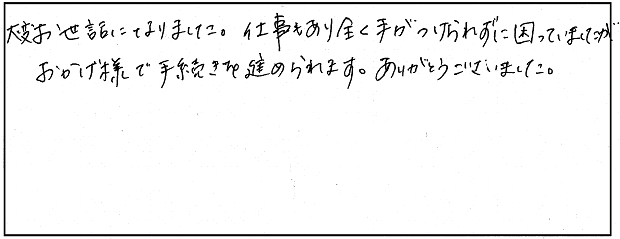 大変お世話になりました。仕事もあり全く手がつけられずに困っていましたが
おかげ様で手続きを進められます。ありがとうございました。